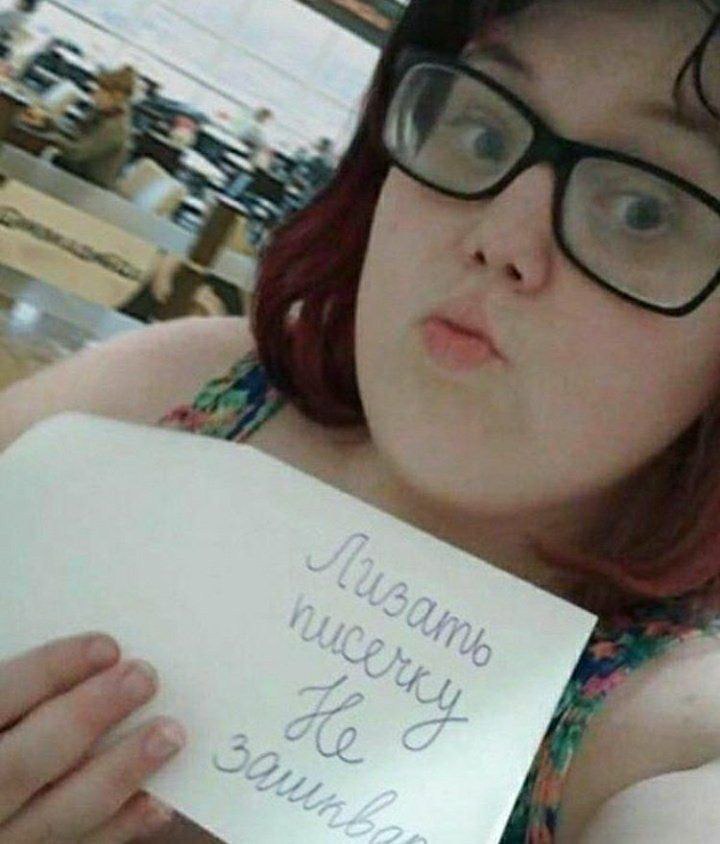 Лизать
писечку
Не
зашквар